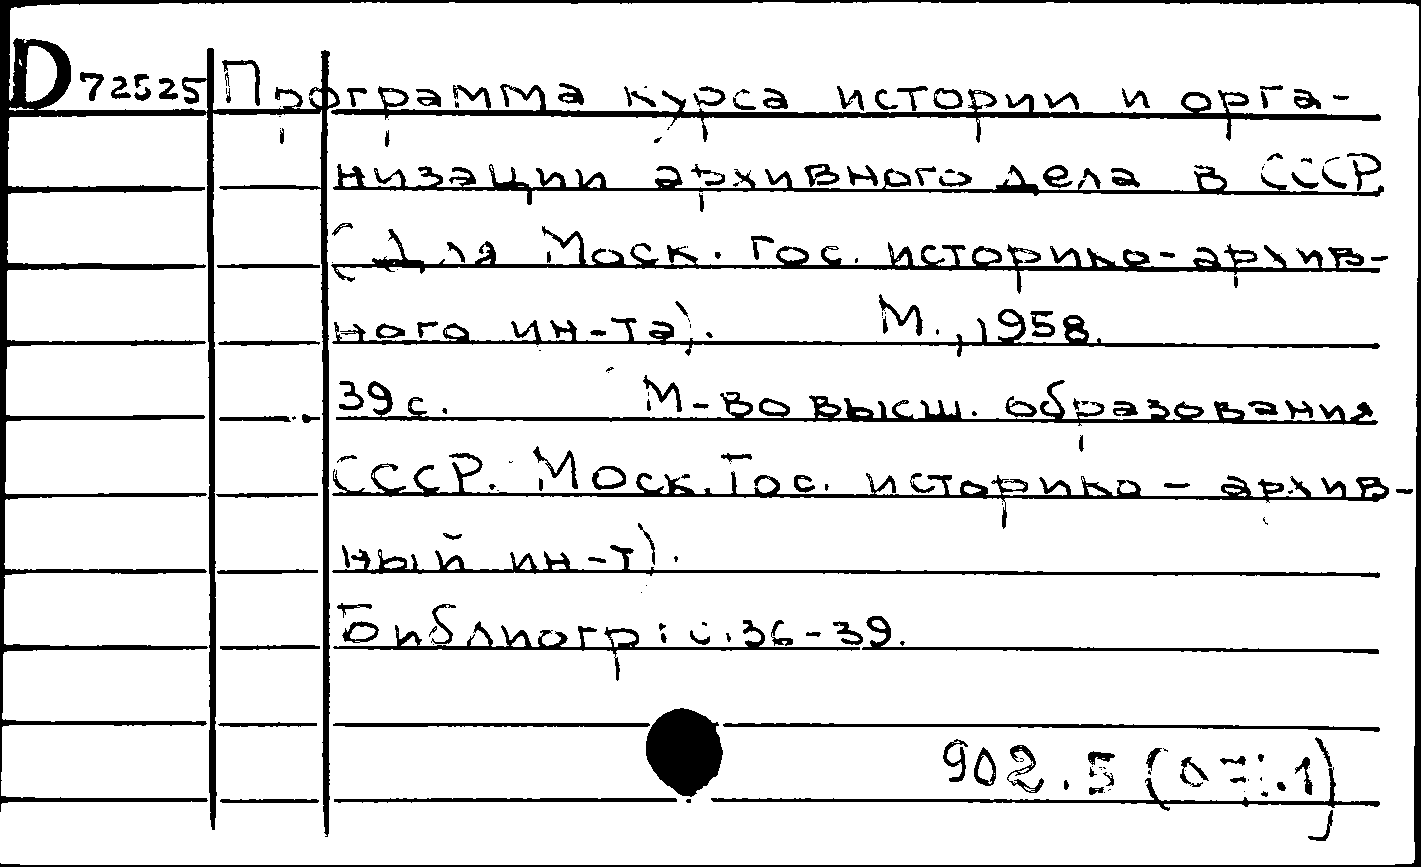 D 72525 Программа курса истории и орга-
низации архивного дела в СССР
(Для Моск. гос. историко-архив-
ного ин-та). М., 1958.
39 с. М-во высш. образования
СССР. Моск. Гос. историко-архив-
ный ин-т).
Библиогр: с. 36-39.
902.5